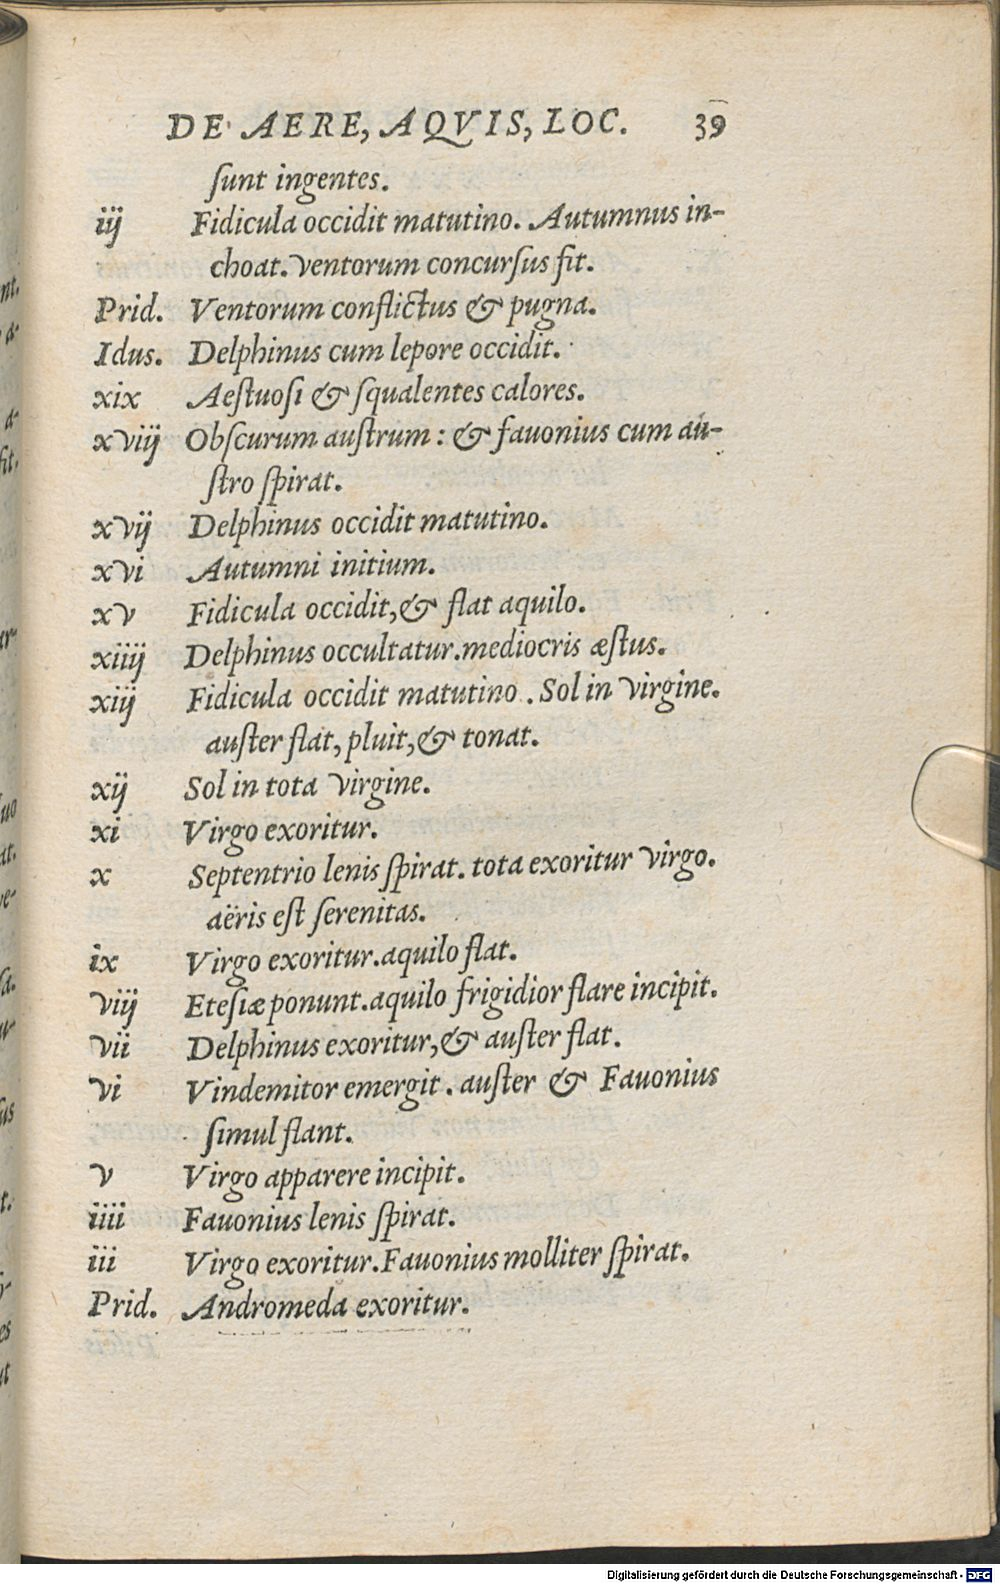 DE AERE, AQVIS, LOC. 39
ſunt ingentes.
iij Fidicula occidit matutino. Autumnus in-
choat. ventorum concurſus fit.
Prid. Ventorum conflictus & pugna.
Idus. Delphinus cum lepore occidit.
xix Aeſtuoſi & ſqualentes calores.
xviij Obſcurum auſtrum: & fauonius cum au-
ſtro ſpirat.
xvij Delphinus occidit matutino.
xvi Autumni initium.
xv Fidicula occidit, & flat aquilo.
xiiij Delphinus occultatur. mediocris æſtus.
xiij Fidicula occidit matutino. Sol in virgine.
auſter flat, pluit, & tonat.
xij Sol in tota virgine.
xi Virgo exoritur.
x Septentrio lenis ſpirat. tota exoritur virgo.
aëris eſt ſerenitas.
ix Virgo exoritur. aquilo flat.
viij Eteſiæ ponunt. aquilo frigidior flare incipit.
vii Delphinus exoritur, & auſter flat.
vi Vindemitor emergit. auſter & Fauonius
ſimul flant.
v Virgo apparere incipit.
iiii Fauonius lenis ſpirat.
iii Virgo exoritur. Fauonius molliter ſpirat.
Prid. Andromeda exoritur.
Digitalisierung gefördert durch die Deutsche Forschungsgemeinschaft - DFG